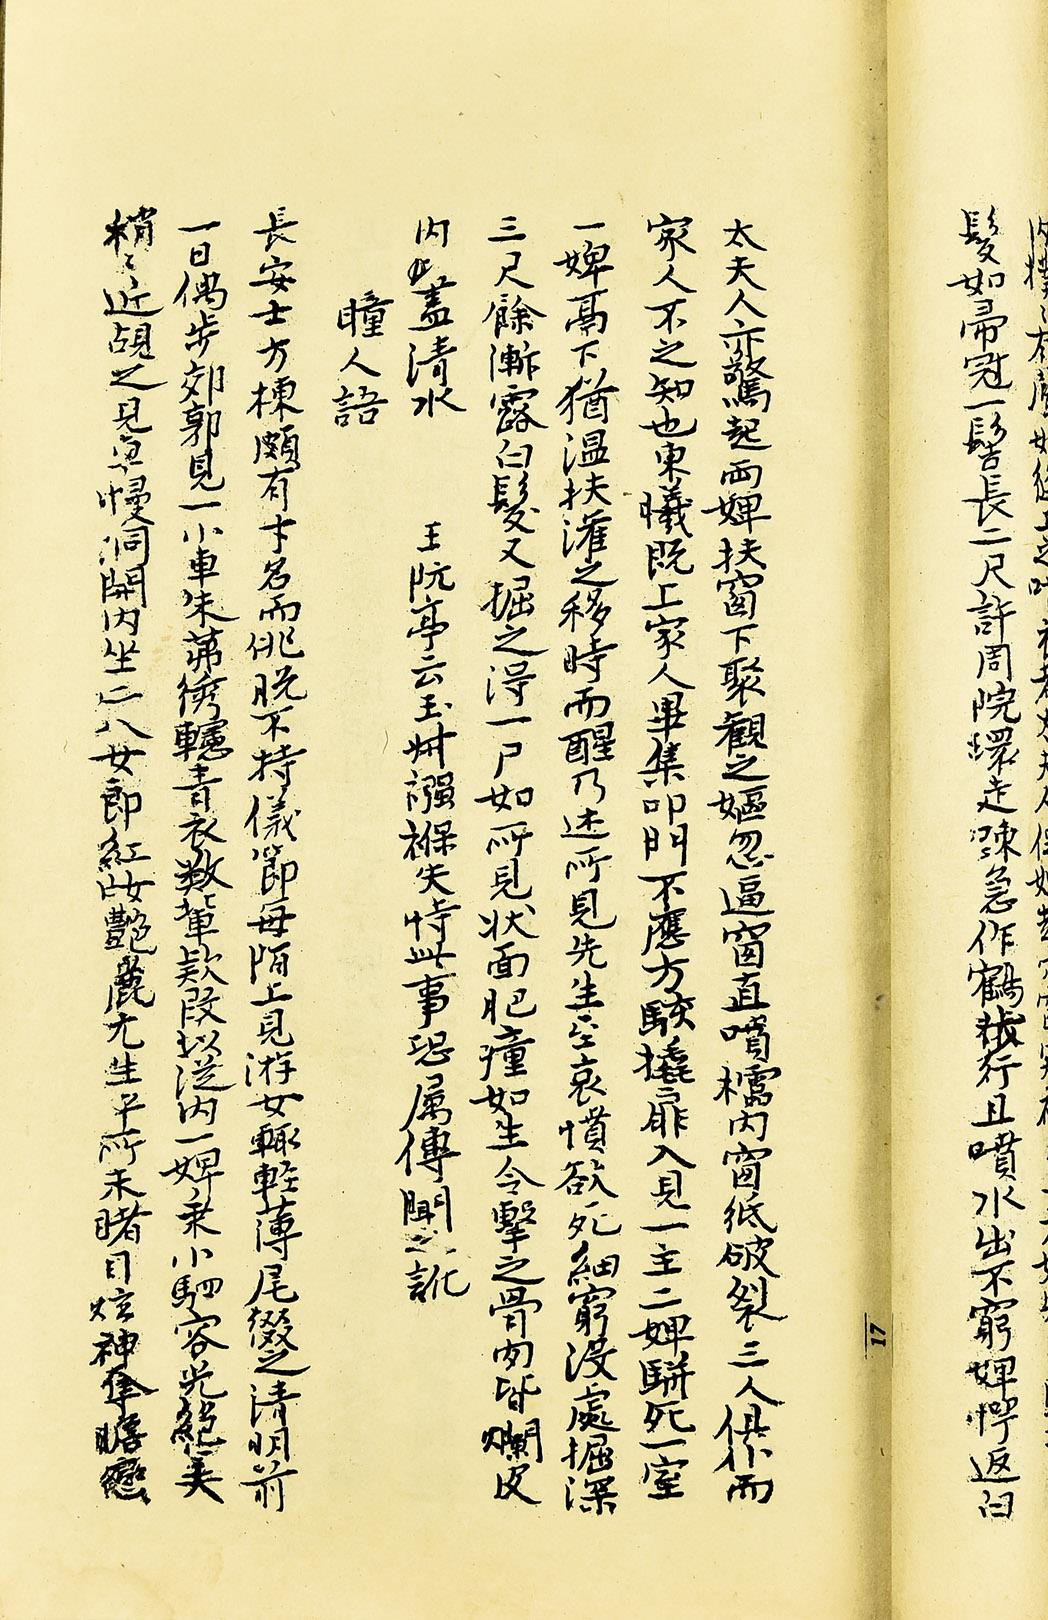 髮如帚冠一髻長二尺許周院環走疎急作鶴𨄮行且噴水出不窮婢愕返白
太夫人亦驚起兩婢扶窗下聚觀之嫗忽逼窗直噴櫺內窗紙破裂三人俱仆而
家人不之知也東曦既上家人畢集叩門不應方駭撬扉入見一主二婢駢死一室
一婢鬲下猶溫扶灌之移時而醒乃述所見先生至哀憤欲死細窮沒處掘深
三尺餘漸露白髮又掘之得一尸如所見狀面肥瘇如生令擊之骨肉皆爛皮
內盡清水　王阮亭云玉叔襁褓失恃此事恐屬傳聞之訛
瞳人語
長安士方棟頗有才名而佻脫不持儀節每陌上見游女輒輕薄尾綴之清明前
一日偶步郊郭見一小車朱茀綉幰青衣數輩款段以從內一婢乘小駟容光絕美
稍々近覘之見車幔洞開內坐二八女郎紅妝艷麗尤生平所未睹目炫神奪瞻戀
17